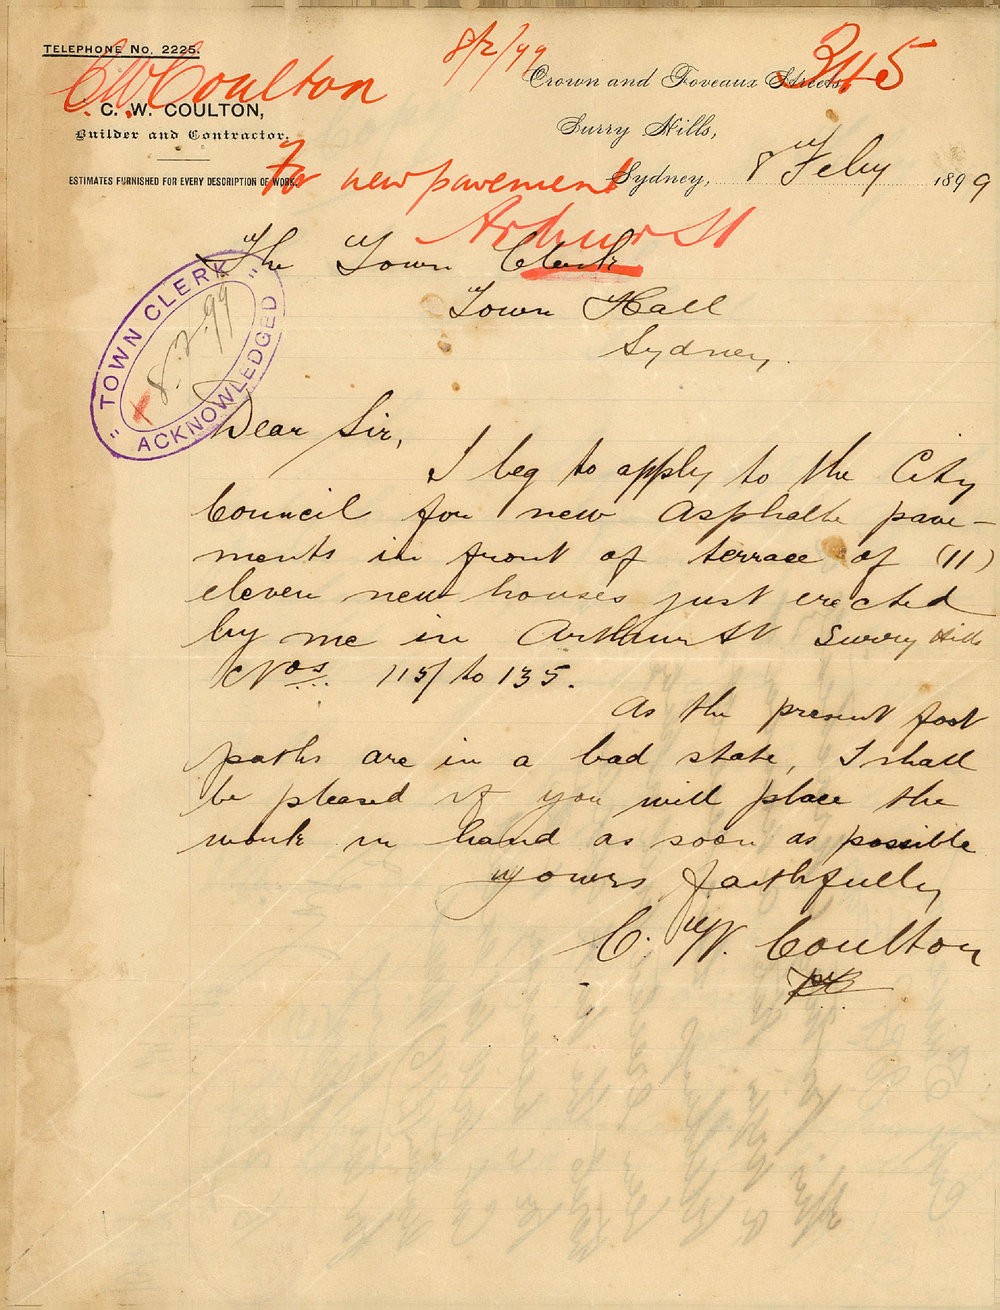 TELEPHONE No. 2225.
8/2/99
345
C W Coulton
Crown and Foveaux Streets,
C. W. COULTON,
Surry Hills,
Builder and Contractor.
ESTIMATES FURNISHED FOR EVERY DESCRIPTION OF WORK.
For new pavement
Sydney, 8 Feby 1899
Arthur St
The Town Clerk
Town Hall
Sydney.
"TOWN CLERK"
8.2.99
ACKNOWLEDGED
Dear Sir,
I beg to apply to the City
Council for new Asphalte pave-
ments in front of terrace of (11)
eleven new houses just erected
by me in Arthur St Surry Hills
Nos. 115 to 135.
As the present foot
paths are in a bad state, I shall
be pleased if you will place the
work in hand as soon as possible
Yours faithfully
C. W. Coulton